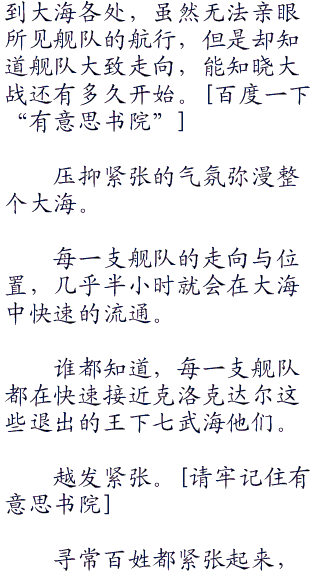 到大海各处，虽然无法亲眼
所见舰队的航行，但是却知
道舰队大致走向，能知晓大
战还有多久开始。[百度一下
“有意思书院”]
压抑紧张的气氛弥漫整
个大海。
每一支舰队的走向与位
置，几乎半小时就会在大海
中快速的流通。
谁都知道，每一支舰队
都在快速接近克洛克达尔这
些退出的王下七武海他们。
越发紧张。[请牢记住有
意思书院]
寻常百姓都紧张起来，